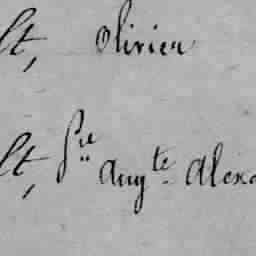 lt, Olivier
lt, Pre Augte Alex